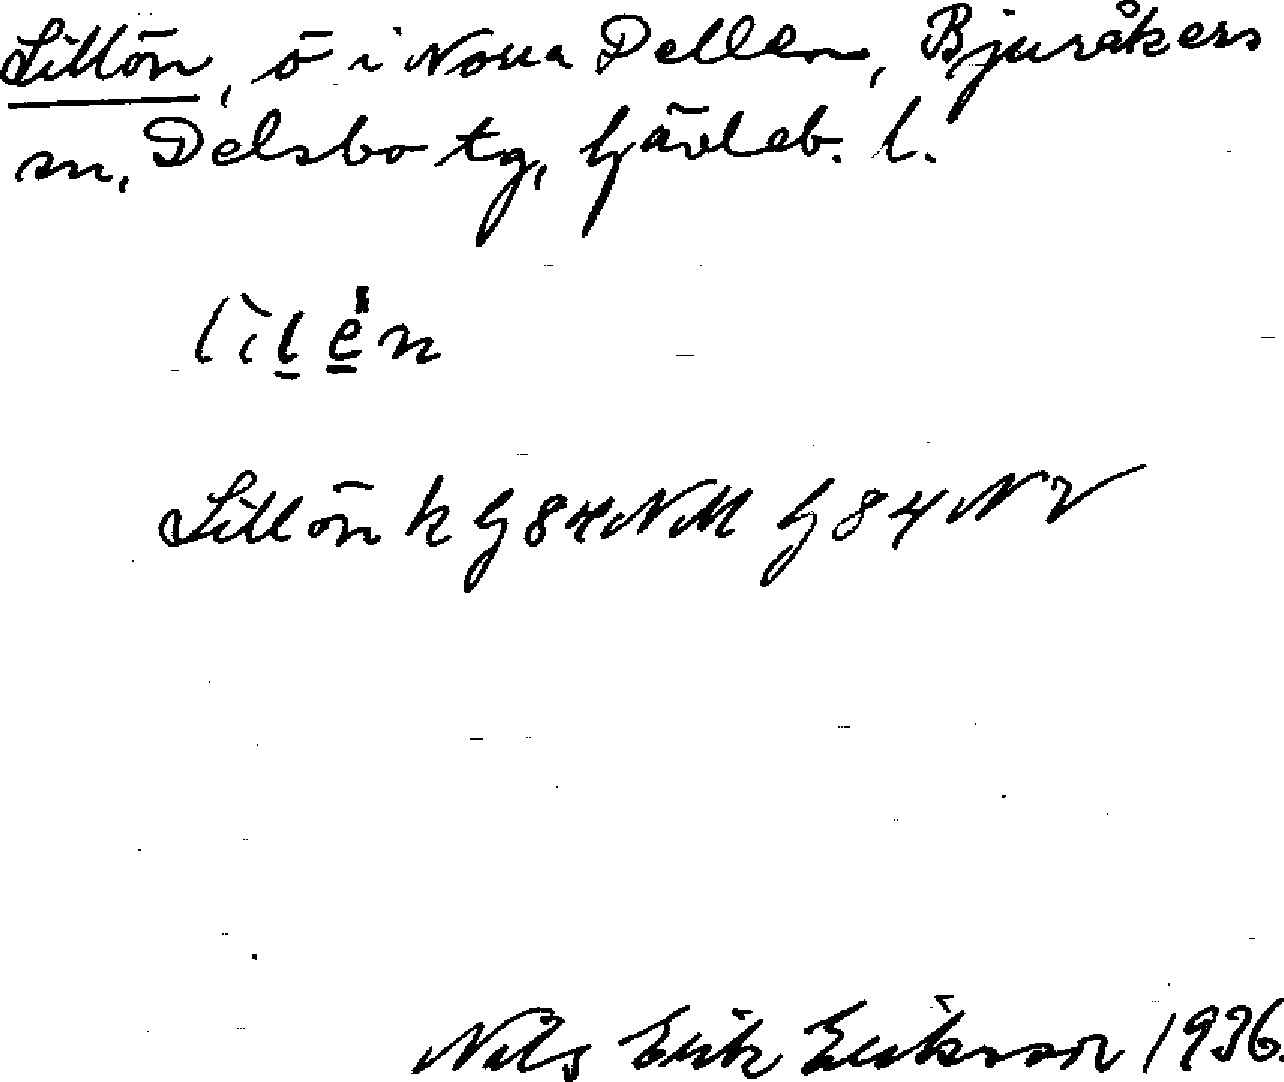 Lillön, ö i Norra Dellen, Bjuråkers
sn, Delsbo tg, Gävleb. l.
Lillön k G84NM G84NV
Nils Erik Eriksson 1936.